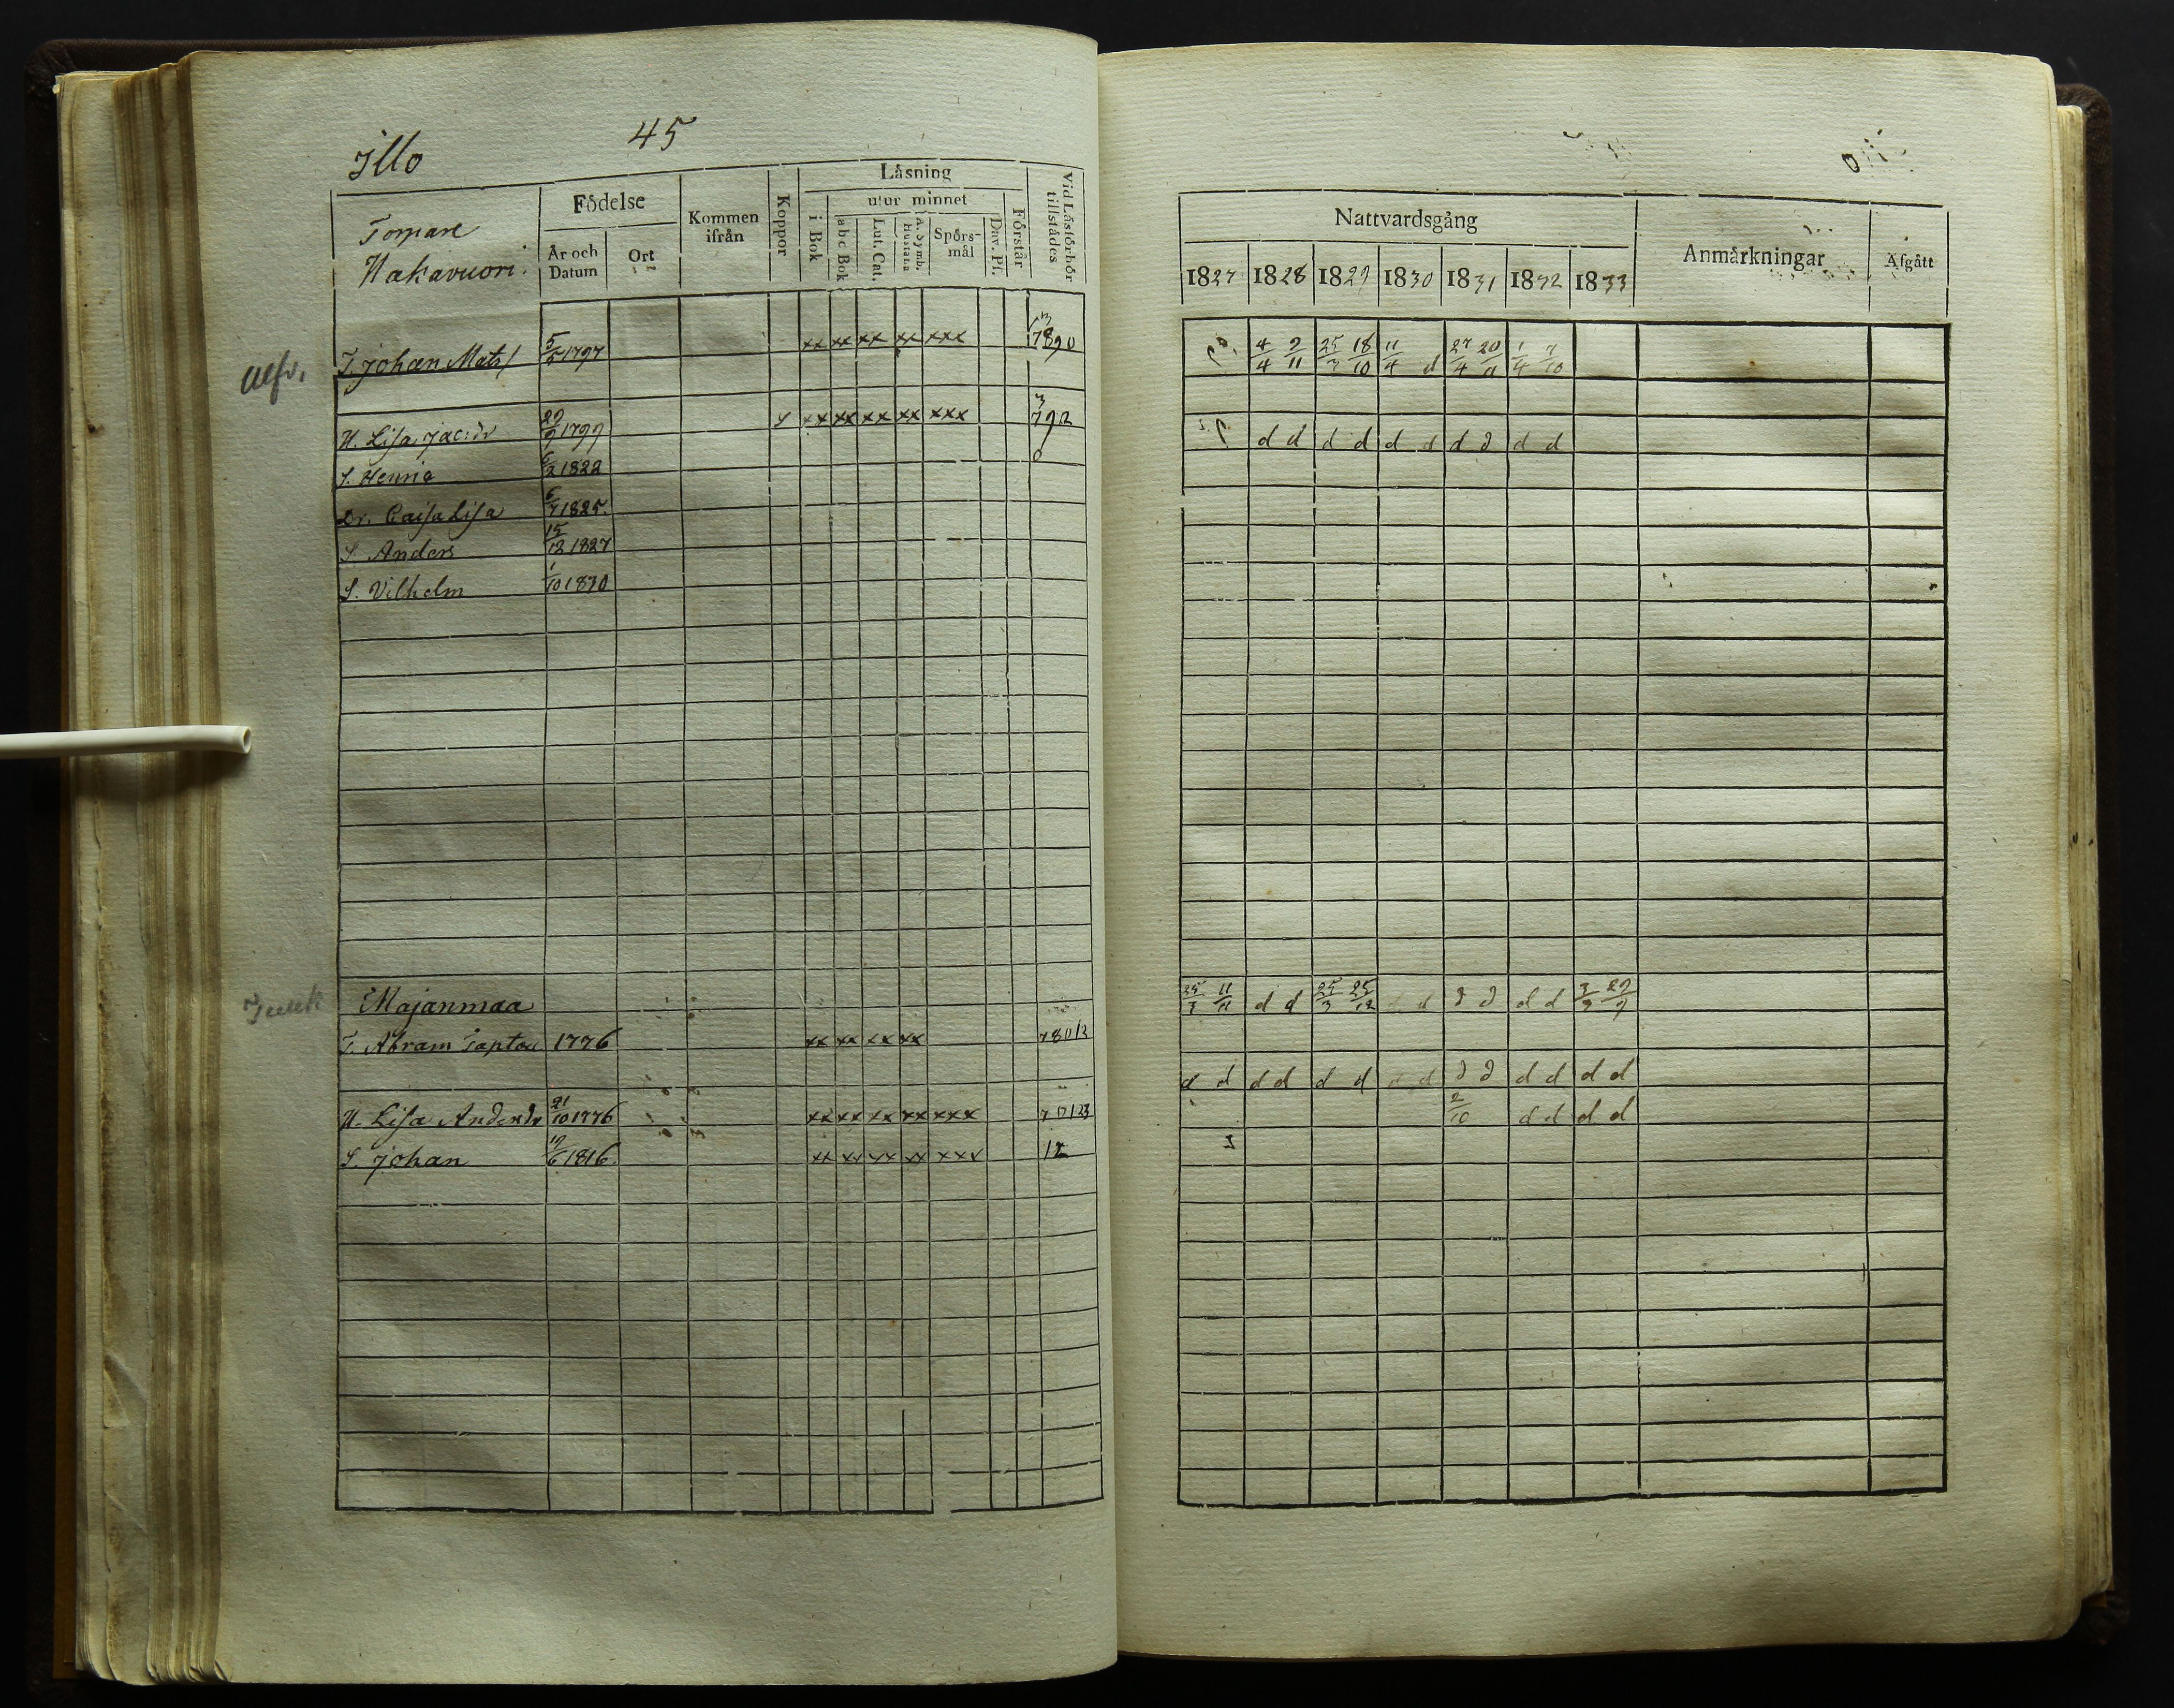 Illo 45
Torpare
Hakavuori.
Födelse
År och Datum
Ort
Kommen ifrån
Koppor
Läsning
utur minnet
i Bok
abc Bok
Lut. Cat.
A. Symb. Hustafla
Spörsmål
Dav. Ps.
Förstår
Vid Läsförhör tillstädes
T. Johan Mats 5/5 1797 xx xx xx xx xxx 7890
H. Lisa Jac:dr 29/9 1799 xx xx xx xx xxx
S. Henric 6/2 1822
Dr. Caisa Lisa 6/7 1825.
S. Anders 15/12 1827
S. Vilhelm 1/10 1830
Majanmaa
T. Abram 1776 xx xx xx xx
H. Lisa Andersdr 21/10 1776 xx xx xx xx xxx
S. Johan 19/6 1816. xx xx xx xx xxx 12
Nattvardsgång
Anmärkningar
Afgått
1827 1828 1829 1830 1831 1832 1833
4/4 9/11 25/3 18/10 11/4 d 27/4 20/11 1/4 7/10
d d d d d d d d d d
25/3 11/11 d d 25/3 25/12 d d d d d d 3/3 29/9
d d d d d d d d d d d d d d
2/10 d d d d